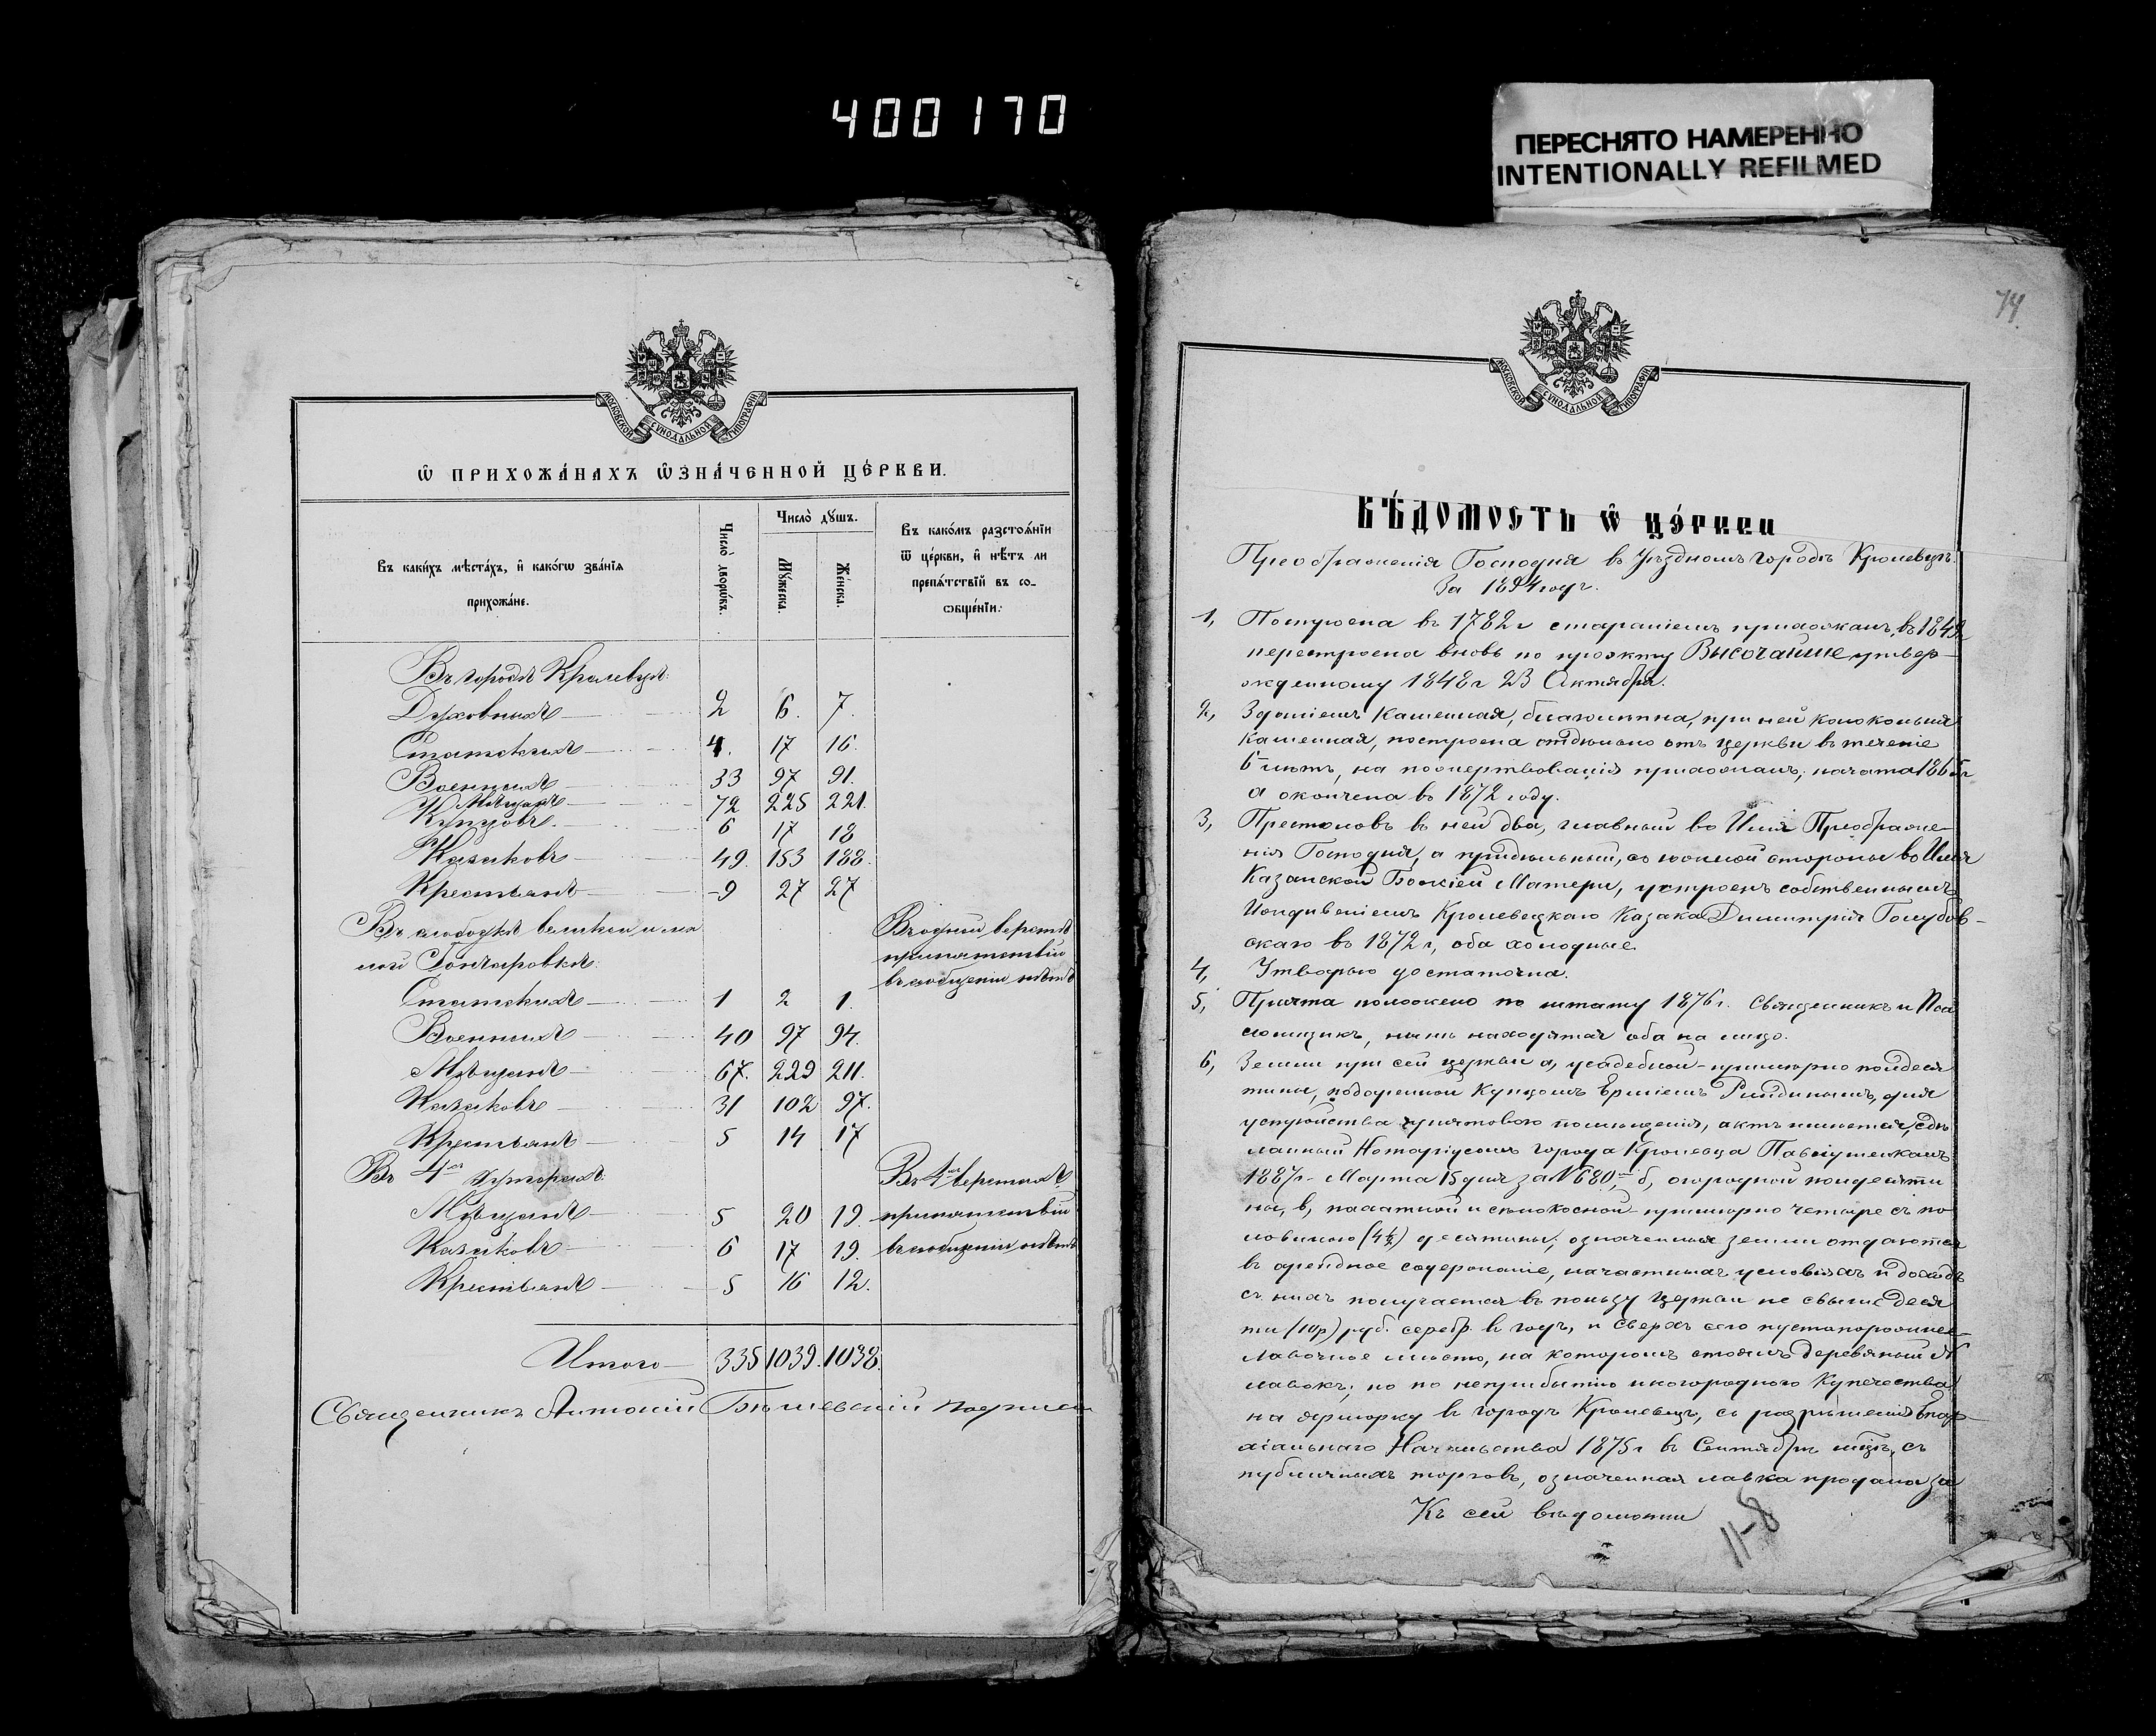 400170
ПЕРЕСНЯТО НАМЕРЕННО
INTENTIONALLY REFILMED
МОСКОВСКОЙ СѴНОДАЛЬНОЙ ТИПОГРАФІИ
Ѡ ПРИХОЖА́НАХЪ ѠЗНА́ЧЕННОЙ ЦЕ́РКВИ.
Въ каки́хъ мѣста́хъ, и҆ како́гѡ зва́нїѧ
прихожа́не.
Число̀ дворѡ́въ.
Число̀ дꙋ́шъ.
Мꙋ́жеска.
Же́нска.
Въ како́мъ разстоѧ́нїи
ѿ це́ркви, и҆ нѣ́тъ ли
препѧ́тствїй въ со-
ѡбще́нїи.
Въ городѣ Кролевцѣ:
Духовныхъ 2 6. 7.
Статскихъ 4. 17 16.
Военныхъ 33 97 91.
Мѣщанъ 72 225 221.
Купцовъ. 6 17 18
Казаковъ 49. 153 188.
Крестьянъ 9 27 27
Въ слободкѣ великой и ма
лой Гончаровкѣ:
Въ одной верстѣ
препятствій
въ сообщеніи нѣтъ
Статскихъ 1 2 1.
Военныхъ 40 97 94.
Мѣщанъ 67. 229 211.
Казаковъ 31 102 97.
Крестьянъ 5 14 17
Въ 4хъ хуторахъ:
Въ 4хъ верстахъ
препятствій
въ сообщеніи нѣтъ
Мѣщанъ 5 20 19.
Казаковъ 6 17 19.
Крестьянъ 5 16 12.
Итого 335 1039. 1038.
Священникъ Антоній
74
МОСКОВСКОЙ СѴНОДАЛЬНОЙ ТИПОГРАФІИ
ВѢ́ДОМОСТЬ Ѡ ЦЕ́РКВИ
Преображенія Господня въ Уѣздномъ городѣ Кролевцѣ.
За 1894 годъ.
1, Построена въ 1782 г стараніемъ прихожанъ, въ 1849 г
перестроена вновь по проэкту Высочайше утвер-
жденному 1848 г 23 Октября.
2, Зданіемъ каменная, благолѣпна, при ней колокольня
каменная, построена отдѣльно отъ церкви въ теченіе
6 лѣтъ, на пожертвованія прихожанъ; начата 1865 г
а окончена въ 1872 году.
3, Престоловъ въ ней два, главный во Имя Преображе-
нія Господня, а придѣльный, съ южной стороны во Имя
Казанской Божіей Матери, устроенъ собственнымъ
иждивеніемъ Кролевецкаго Казака Димитрія Голубов-
скаго въ 1872 г, оба холодные.
4, Утварью достаточна.
5, Причта положено по штату 1876 г. Священникъ и Пса
ломщикъ, нынѣ находятся оба на лицо.
6, Земли при сей церкви а, усадебной - примѣрно полдеся
тины, подаренной Купцомъ для
устройства причтоваго помѣщенія, актъ имѣется, сдѣ
ланный Нотаріусомъ города Кролевца
1887 г. Марта 15 дня за № 680, б, огородной полдесяти
ны, в, пахатной и сѣнокосной - примѣрно четыре съ по
ловиною (4½) десятины; означенныя земли отдаются
въ арендное содержаніе, на частныхъ условіяхъ и доходъ
съ нихъ получается въ пользу Церкви не свыше деся
ти (10 р) руб. серебр. въ годъ, и сверхъ сего пустопорожнее
лавочное мѣсто, на которомъ стоялъ деревянный
лавокъ; но по неприбытію иногороднаго Купечества
на ярморку въ городъ Кролевецъ, съ разрѣшенія Епар-
хіальнаго Начальства 1875 г въ Сентябрѣ мѣс., съ
публичныхъ торговъ, означенная лавка продана за
Къ сей вѣдомости
11-8